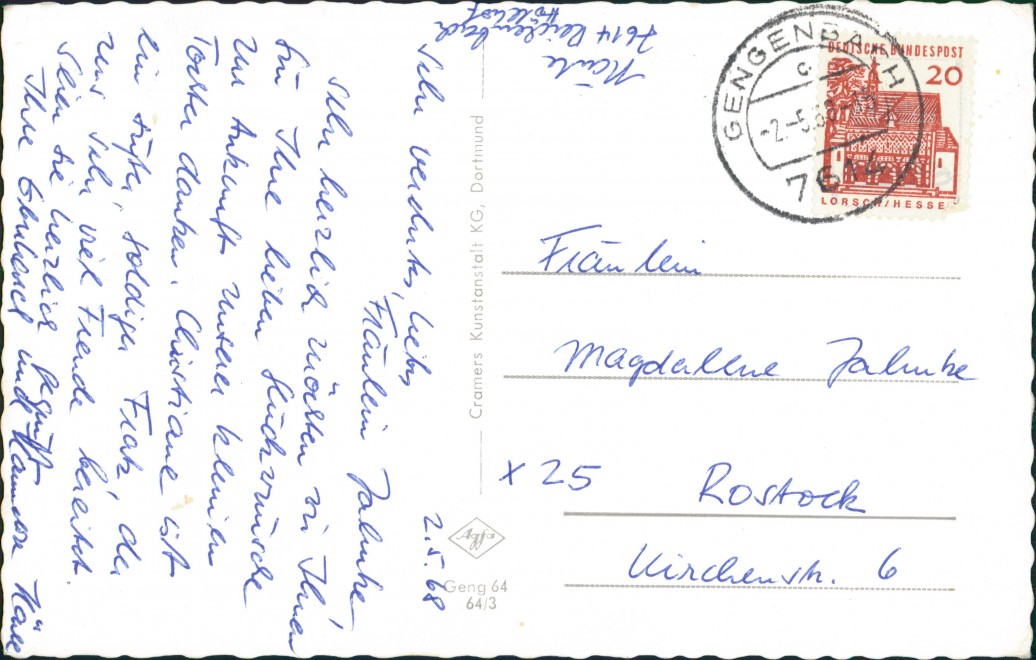 2.5.68
Sehr verehrtes, liebes
Fräulein Jahnke!
Sehr herzlich möchten wir Ihnen
für Ihre lieben Glückwünsche
zur Ankunft unserer kleinen
Tochter danken. Christiane ist
ein süßer, goldiger Fratz, der
uns sehr viel Freude bereitet.
Seien Sie herzlich gegrüßt
Ihre
und
7614 Reichenbach
Cramers Kunstanstalt KG, Dortmund
Agfa
Geng 64
64/3
GENGENBACH
-2.-5.68-
7614
DEUTSCHE BUNDESPOST
20
LORSCH/HESSEN
Fräulein
Magdalene Jahnke
x 25 Rostock
Kirchenstr. 6